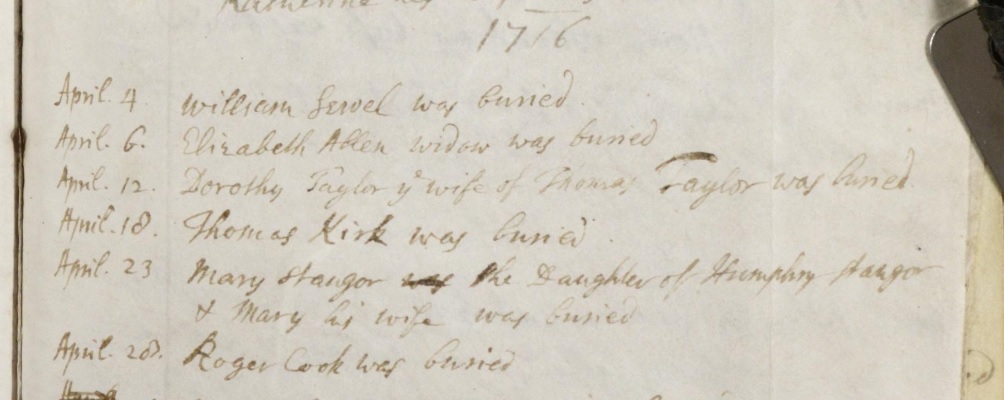 Katherine
1716
April. 4 William Sewel was buried.
April. 6. Elizabeth Allen widow was buried
April. 12. Dorothy Taylor ye wife of Thomas Taylor was buried.
April. 18. Thomas Kirk was buried.
April. 23 Mary Stangor was the Daughter of Humphry Stangor
& Mary his wife was buried
April. 28. Roger Cook was buried